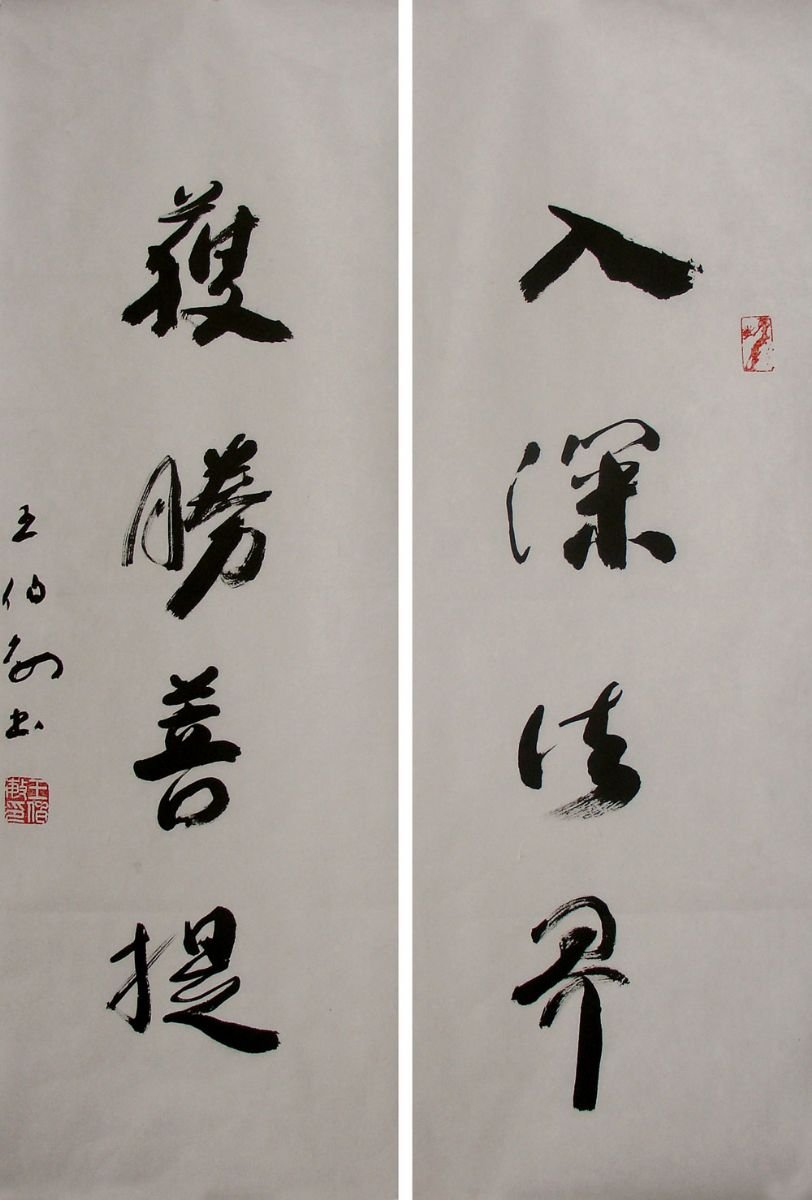 入深法界
獲勝菩提
王伯敏书
王伯敏印